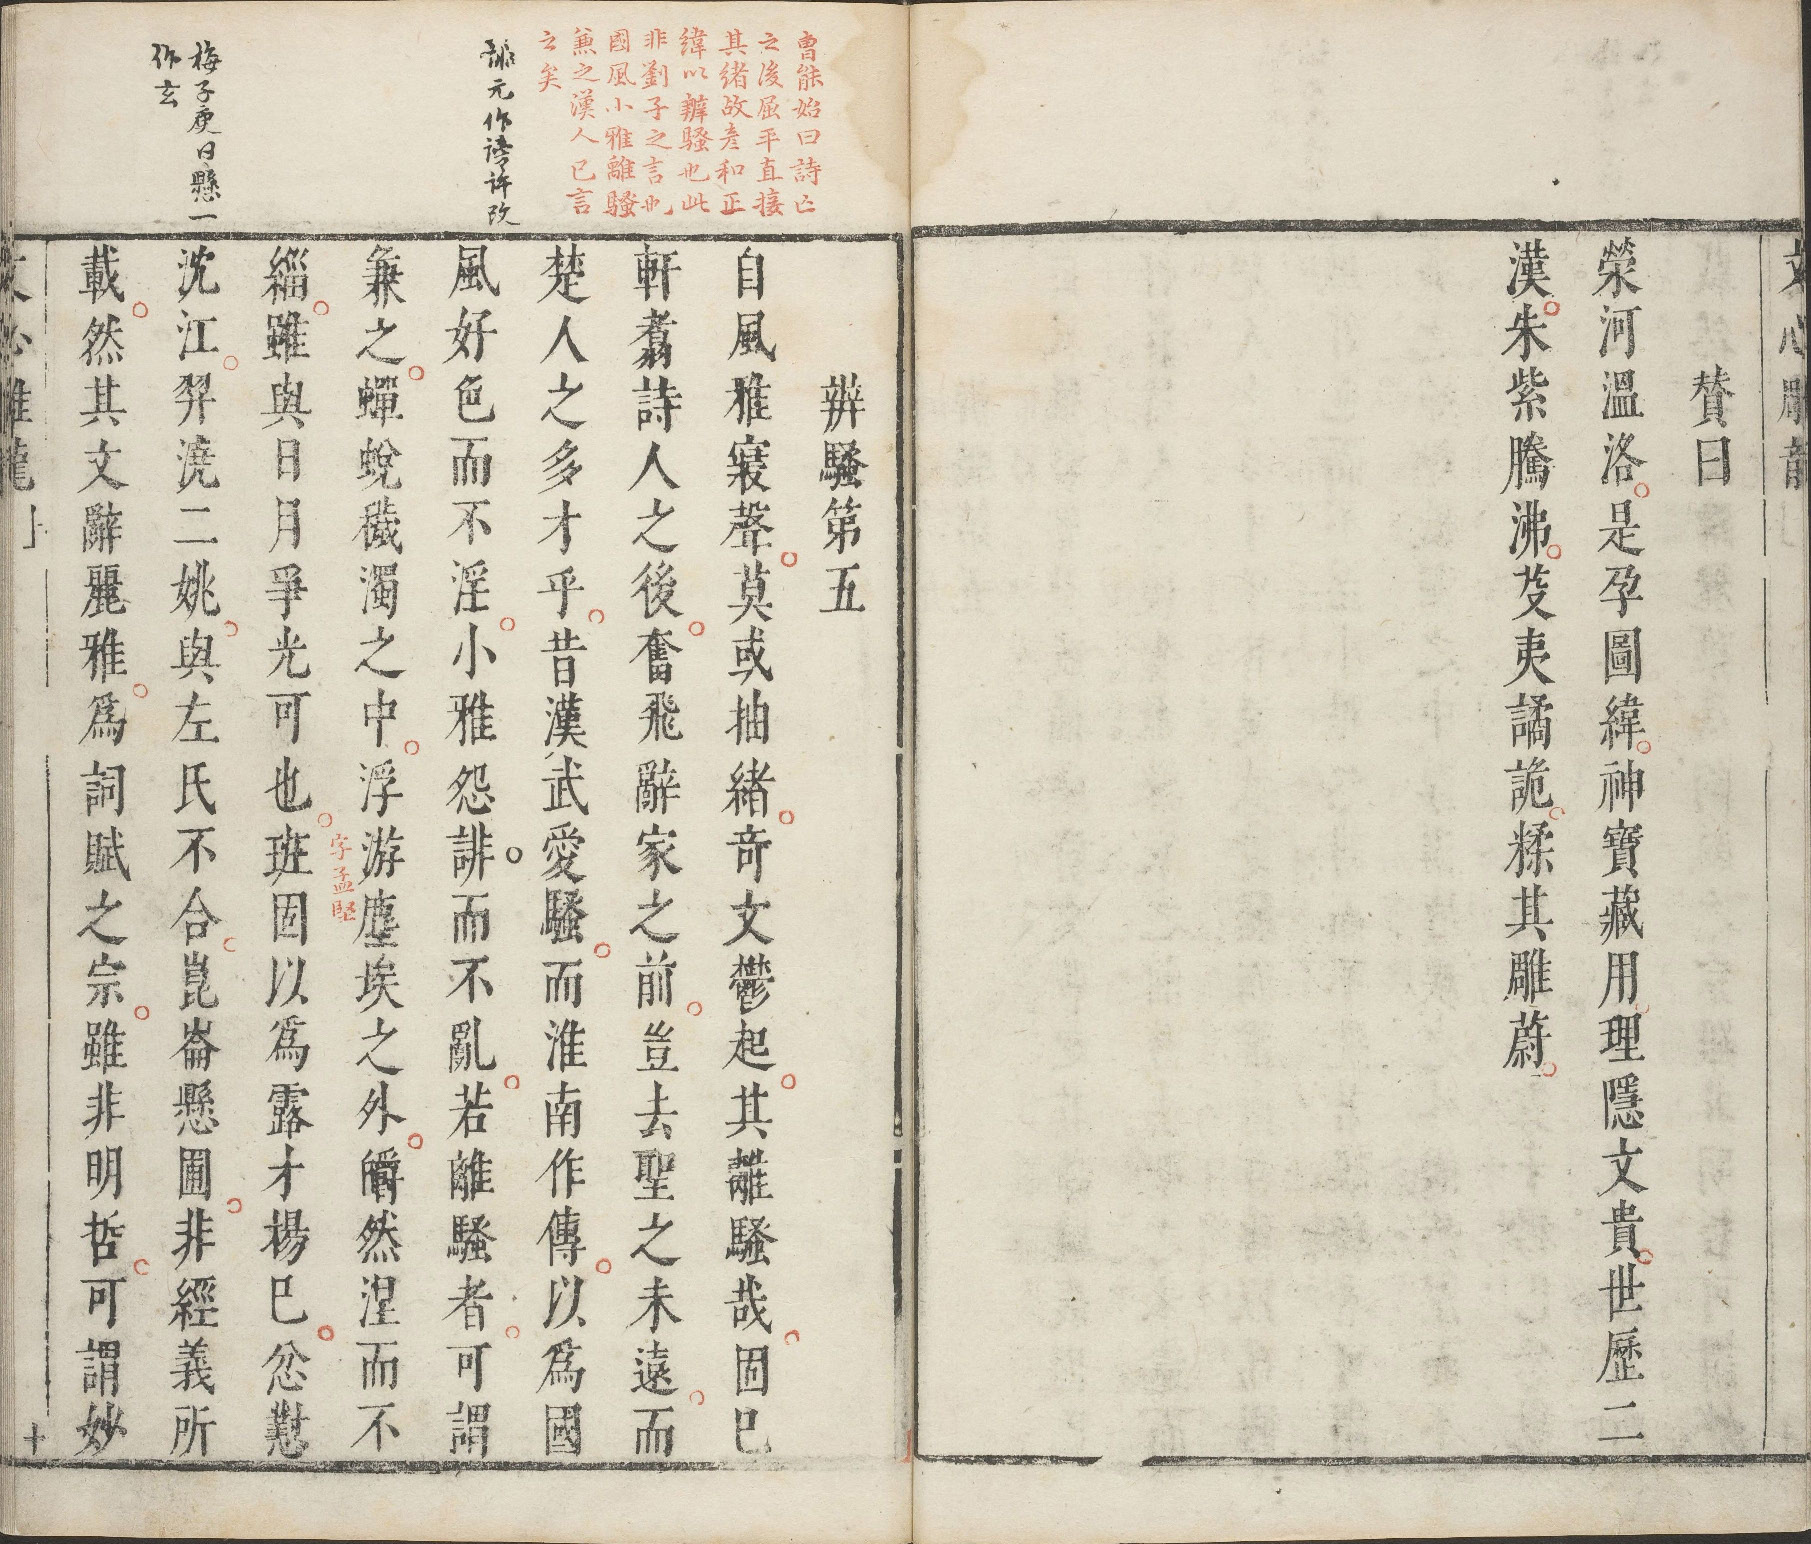 文心雕龍
贊曰
榮河溫洛是孕圖緯神寶藏用理隱文貴世歷二
漢朱紫騰沸芟夷譎詭糅其雕蔚
曹能始曰詩亡
之後屈平直接
其緒故彥和正
緯以辨騷也此
非劉子之言也
國風小雅離騷
兼之漢人已言
之矣
辨騷第五
自風雅寢聲莫或抽緒奇文鬱起其離騷哉固已
軒翥詩人之後奮飛辭家之前豈去聖之未遠而
楚人之多才乎昔漢武愛騷而淮南作傳以為國
誹元作謗許改
風好色而不淫小雅怨誹而不亂若離騷者可謂
兼之蟬蛻穢濁之中浮游塵埃之外皭然涅而不
字孟堅
緇雖與日月爭光可也班固以爲露才楊巳忿懟
梅子庾曰懸一
作玄
沈江羿澆二姚與左氏不合崑崙懸圃非經義所
載然其文辭麗雅爲詞賦之宗雖非明哲可謂妙
文心雕龍 上
十